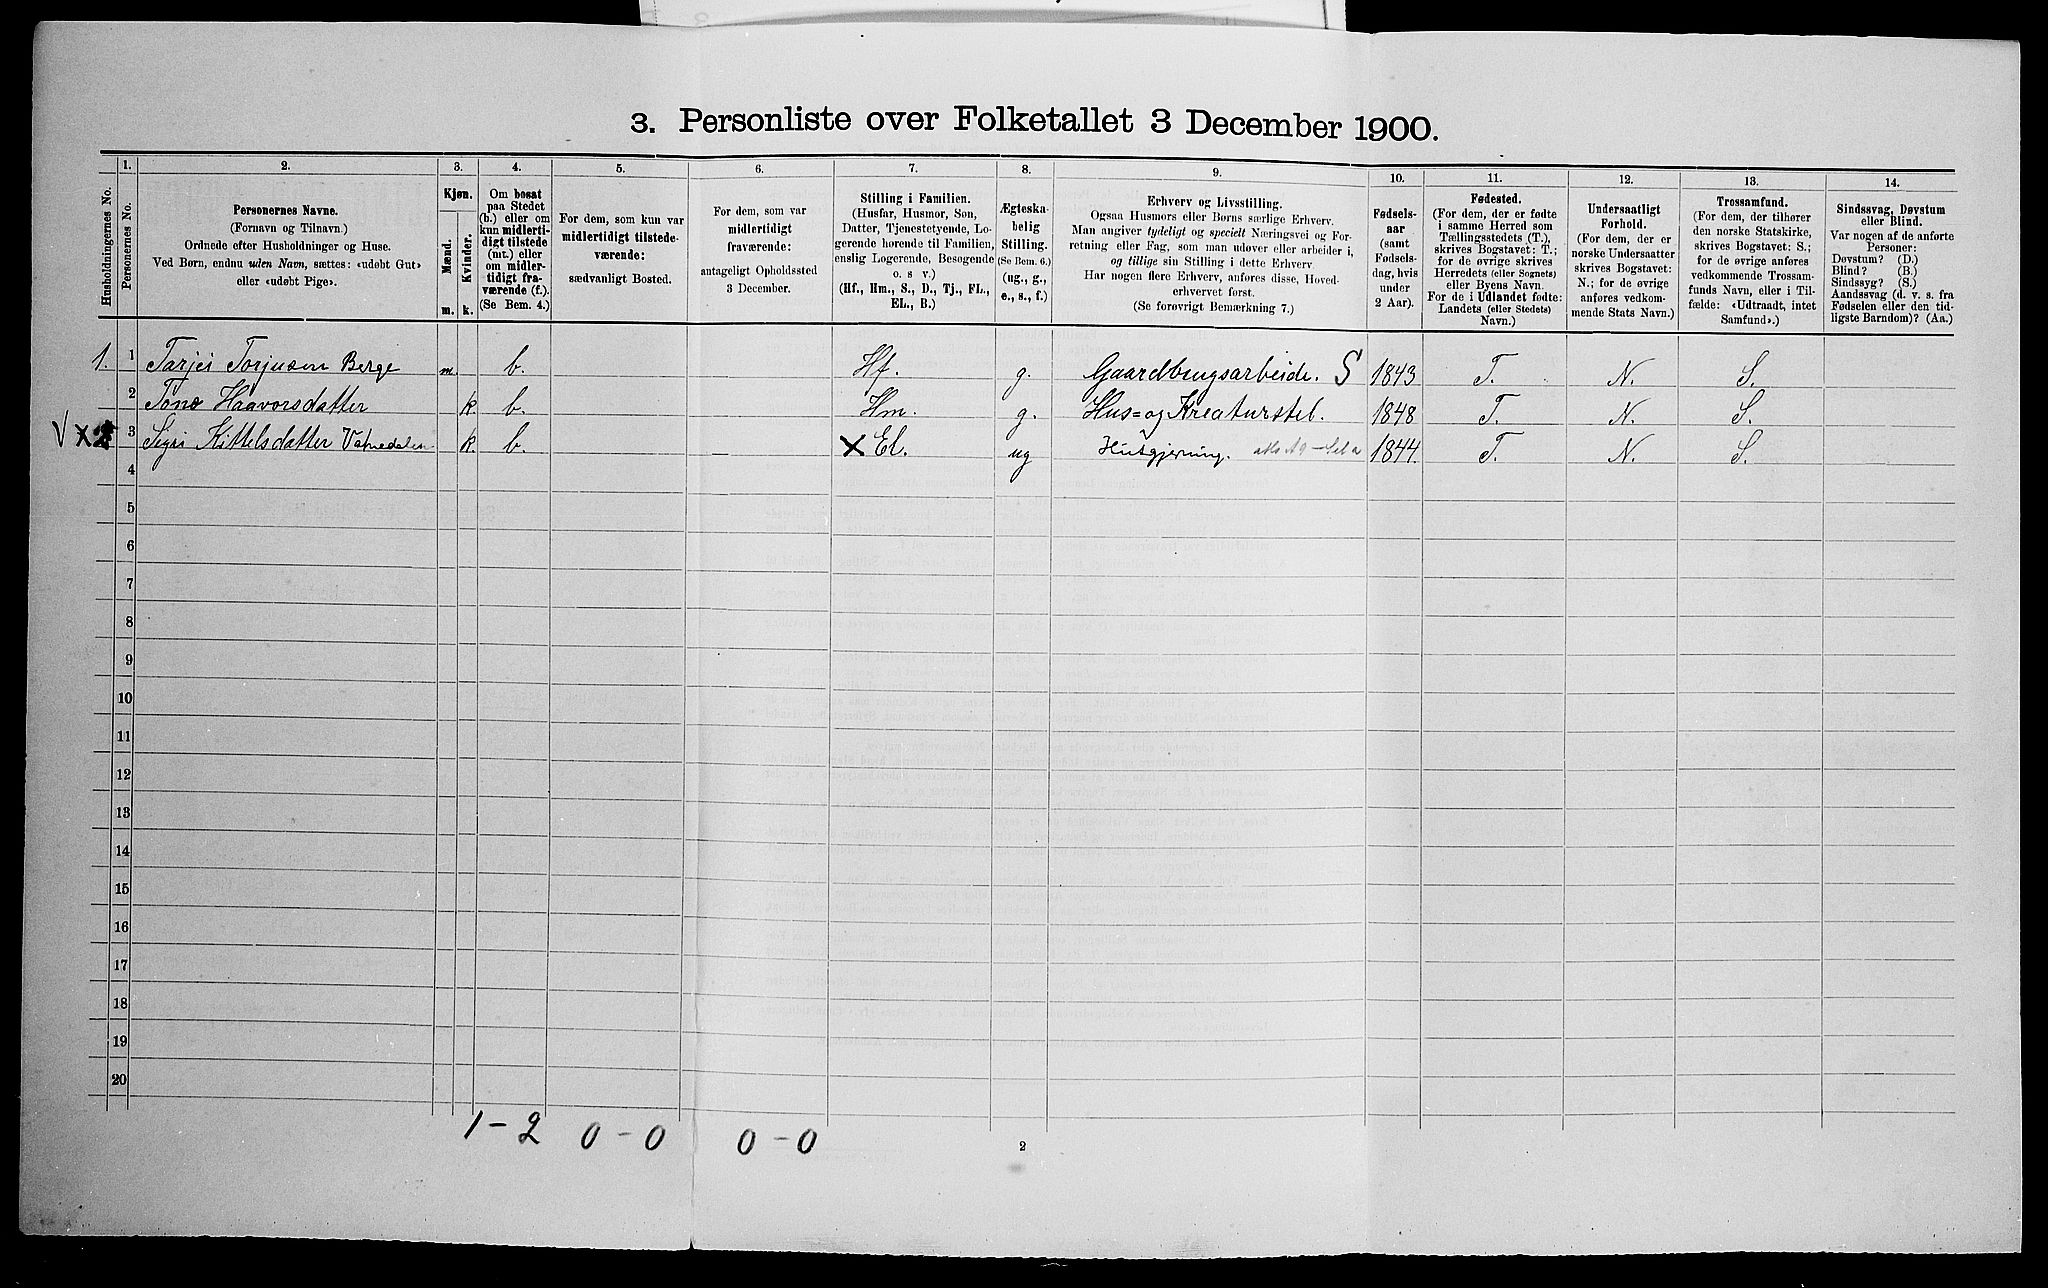 3. Personliste over Folketallet 3 December 1900.
1. 2. 3. 4. 5. 6. 7. 8. 9. 10. 11. 12. 13. 14.
Husholdningernes No.
Personernes No.
Personernes Navne.
(Fornavn og Tilnavn.)
Ordnede efter Husholdninger og Huse.
Ved Børn, endnu uden Navn, sættes: «udøbt Gut»
eller «udøbt Pige».
Kjøn.
Mænd.
Kvinder.
m. k.
Om bosat
paa Stedet
(b.) eller om
kun midlerti-
digt tilstede
(mt.) eller
om midler-
tidigt fra-
værende (f.).
(Se Bem. 4.)
For dem, som kun var
midlertidigt tilstede-
værende:
sædvanligt Bosted.
For dem, som var
midlertidigt
fraværende:
antageligt Opholdssted
3 December.
Stilling i Familien.
(Husfar, Husmor, Søn,
Datter, Tjenestetyende, Lo-
gerende hørende til Familien,
enslig Logerende, Besøgende
o. s v.)
(Hf., Hm., S., D., Tj., FL.,
EL., B.)
Ægteska-
belig
Stilling.
(Se Bem. 6.)
(ug., g.,
e., s., f.)
Erhverv og Livsstilling.
Ogsaa Husmors eller Børns særlige Erhverv.
Man angiver tydeligt og specielt Næringsvei og For-
retning eller Fag, som man udøver eller arbeider i,
og tillige sin Stilling i dette Erhverv.
Har nogen flere Erhverv, anføres disse, Hoved-
erhvervet først.
(Se forøvrigt Bemærkning 7.)
Fødsels-
aar
(samt
Fødsels-
dag, hvis
under
2 Aar).
Fødested.
(For dem, der er fødte
i samme Herred som
Tællingsstedets (T.),
skrives Bogstavet: T.;
for de øvrige skrives
Herredets (eller Sognets)
eller Byens Navn.
For de i Udlandet fødte:
Landets (eller Stedets)
Navn.)
Undersaatligt
Forhold.
(For dem, der er
norske Undersaatter
skrives Bogstavet:
N.; for de øvrige
anføres vedkom-
mende Stats Navn.)
Trossamfund.
(For dem, der tilhører
den norske Statskirke,
skrives Bogstavet: S.;
for de øvrige anføres
vedkommende Trossam-
funds Navn, eller i Til-
fælde: «Udtraadt, intet
Samfund».)
Sindssvag, Døvstum
eller Blind.
Var nogen af de anførte
Personer:
Døvstum? (D.)
Blind? (B.)
Sindssyg? (S.)
Aandssvag (d. v. s. fra
Fødselen eller den tid-
ligste Barndom)? (Aa.)
1. 1 Tarjei Torjusen Berge m b. Hf. g. Gaardbrugsarbeide. S 1843 T. N. S.
2 Tone Haavorsdatter k. b. Hm. g. Hus= og Kreaturstel. 1848 T. N. S.
V X 2 3 Sigri Kittelsdatter Vatnedalen k. b. X El. ug Husgjerning. 1844. T. N. S.
4
5
6
7
8
9
10
11
12
13
14
15
16
17
18
19
20
1 – 2 0 – 0 0 – 0
2